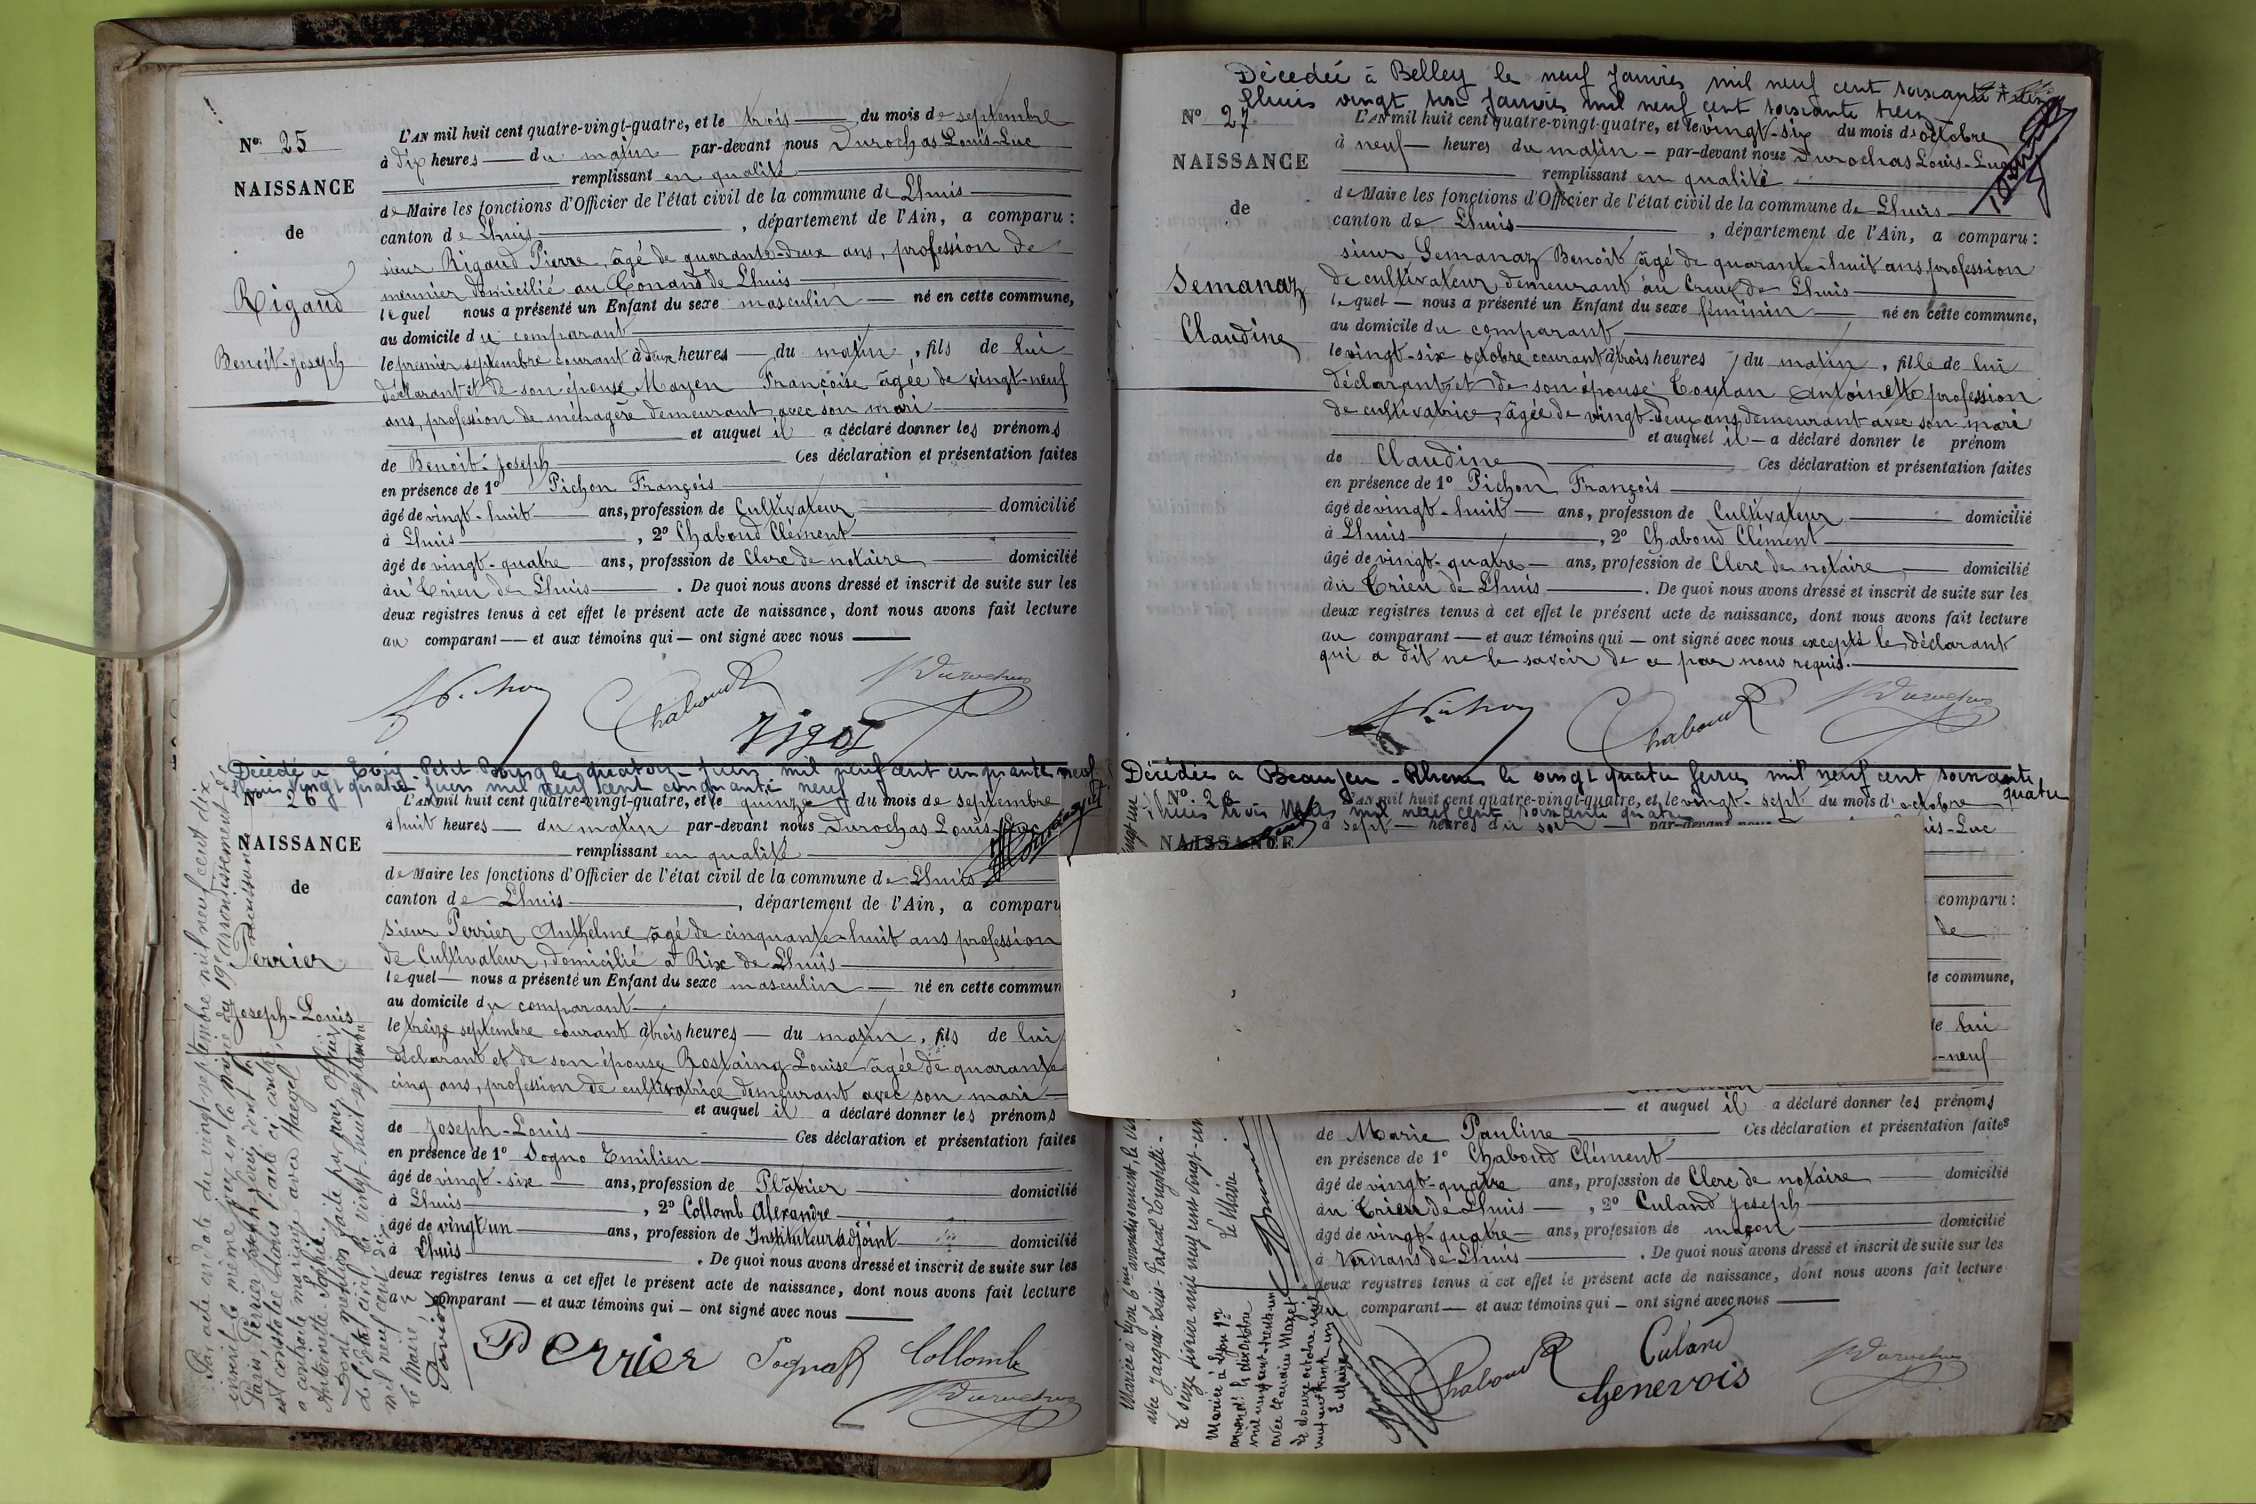 N° 25
NAISSANCE
de
Rigaud
Benoit-Joseph
L'AN mil huit cent quatre-vingt-quatre, et le trois du mois de septembre
à dix heures du matin par-devant nous Durochas Louis-Luc
remplissant en qualité
de Maire les fonctions d'Officier de l'état civil de la commune de Lhuis
canton de Lhuis, département de l'Ain, a comparu :
sieur Rigaud Pierre, âgé de quarante-deux ans, profession de
meunier domicilié au Conand de Lhuis
lequel nous a présenté un Enfant du sexe masculin né en cette commune,
au domicile du comparant
le premier septembre courant à deux heures du matin, fils de lui
déclarant et de son épouse Mayen Françoise âgée de vingt-neuf
ans, profession de ménagère demeurant avec son mari
et auquel il a déclaré donner les prénoms
de Benoit-Joseph Ces déclaration et présentation faites
en présence de 1° Pichon François
âgé de vingt-huit ans, profession de Cultivateur domicilié
à Lhuis, 2° Chaboud Clément
âgé de vingt-quatre ans, profession de Clerc de notaire domicilié
au Crieu de Lhuis. De quoi nous avons dressé et inscrit de suite sur les
deux registres tenus à cet effet le présent acte de naissance, dont nous avons fait lecture
au comparant et aux témoins qui ont signé avec nous
Pichon Chaboud Durochas
Rigot
Décédé à Evry Petit Bourg le quatorze Juin mil neuf cent cinquante neuf
Lhuis vingt quatre juin mil neuf cent cinquante neuf
N° 26
NAISSANCE
de
Perrier
Joseph-Louis
L'AN mil huit cent quatre-vingt-quatre, et le quinze du mois de septembre
à huit heures du matin par-devant nous Durochas Louis-Luc
remplissant en qualité
de Maire les fonctions d'Officier de l'état civil de la commune de Lhuis
canton de Lhuis, département de l'Ain, a comparu
sieur Perrier Anthelme âgé de cinquante-huit ans profession
de Cultivateur, domicilié à Rix de Lhuis
lequel nous a présenté un Enfant du sexe masculin né en cette commun
au domicile du comparant
le treize septembre courant à trois heures du matin, fils de lui
déclarant et de son épouse Rostaing Louise âgée de quarante
cinq ans, profession de cultivatrice demeurant avec son mari
et auquel il a déclaré donner les prénoms
de Joseph-Louis Ces déclaration et présentation faites
en présence de 1° Sogno Emilien
âgé de vingt-six ans, profession de Plâtrier domicilié
à Lhuis, 2° Collomb Alexandre
âgé de vingt un ans, profession de Instituteur adjoint domicilié
à Lhuis. De quoi nous avons dressé et inscrit de suite sur les
deux registres tenus à cet effet le présent acte de naissance, dont nous avons fait lecture
au comparant et aux témoins qui ont signé avec nous
Perrier Sogno Collomb
Durochas
Par acte en date du vingt septembre mil neuf cent dix
inscrit le même jour en la mairie du 19e arrondissement de
Paris, Perrier Joseph Louis, dont la naissance
est constatée dans l'acte ci contre,
a contracté mariage avec Haegel
Antoinette Sophie.
Dont mention faite par nous officier
de l'état civil le vingt-huit septembre
mil neuf cent dix
Le Maire
Décédée à Belley le neuf Janvier mil neuf cent soixante treize
Lhuis vingt six Janvier mil neuf cent soixante treize
N° 27
NAISSANCE
de
Semanaz
Claudine
L'AN mil huit cent quatre-vingt-quatre, et le vingt-six du mois d'octobre
à neuf heures du matin par-devant nous Durochas Louis-Luc
remplissant en qualité
de Maire les fonctions d'Officier de l'état civil de la commune de Lhuis
canton de Lhuis, département de l'Ain, a comparu :
sieur Semanaz Benoît âgé de quarante-huit ans, profession
de cultivateur demeurant au Crieu de Lhuis
lequel nous a présenté un Enfant du sexe féminin né en cette commune,
au domicile du comparant
le vingt-six octobre courant à trois heures du matin, fille de lui
déclarant et de son épouse Coulan Antoinette profession
de cultivatrice, âgée de vingt-deux ans demeurant avec son mari
et auquel il a déclaré donner le prénom
de Claudine Ces déclaration et présentation faites
en présence de 1° Pichon François
âgé de vingt-huit ans, profession de Cultivateur domicilié
à Lhuis, 2° Chaboud Clément
âgé de vingt-quatre ans, profession de Clerc de notaire domicilié
au Crieu de Lhuis. De quoi nous avons dressé et inscrit de suite sur les
deux registres tenus à cet effet le présent acte de naissance, dont nous avons fait lecture
au comparant et aux témoins qui ont signé avec nous excepté le déclarant
qui a dit ne le savoir de ce par nous requis.
Pichon Chaboud Durochas
Décédée à Beaujeu - Rhône le vingt quatre février mil neuf cent soixante quatre
Lhuis trois Mars mil neuf cent soixante quatre
N° 28
NAISSANCE
L'AN mil huit cent quatre-vingt-quatre, et le vingt-sept du mois d'octobre
à sept heures du soir par-devant nous
uis-Luc
comparu :
de
te commune,
de lui
-neuf
et auquel il a déclaré donner les prénoms
de Marie Pauline Ces déclaration et présentation faites
en présence de 1° Chaboud Clément
âgé de vingt-quatre ans, profession de Clerc de notaire domicilié
au Crieu de Lhuis, 2° Culand Joseph
âgé de vingt-quatre ans, profession de maçon domicilié
à Vernans de Lhuis. De quoi nous avons dressé et inscrit de suite sur les
deux registres tenus à cet effet le présent acte de naissance, dont nous avons fait lecture
au comparant et aux témoins qui ont signé avec nous
Chaboud Culand Durochas
Genevois
Mariée à Lyon 6me arrondissement, le
avec Jacques-Louis-Pascal
Le seize février mil neuf cent vingt-un
Le Maire
Mariée à Lyon 1er
arrondt le dix octobre
mil neuf cent trente-un
avec Claudius Mazet
Le douze octobre mil
neuf cent trente un
Le Maire